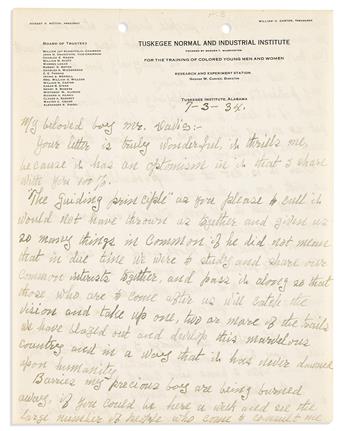 ROBERT R. MOTON, PRESIDENT
WILLIAM H. CARTER, TREASURER
BOARD OF TRUSTEES
TUSKEGEE NORMAL AND INDUSTRIAL INSTITUTE
FOUNDED BY BOOKER T. WASHINGTON
FOR THE TRAINING OF COLORED YOUNG MEN AND WOMEN
RESEARCH AND EXPERIMENT STATION
GEORGE W. CARVER, DIRECTOR
TUSKEGEE INSTITUTE, ALABAMA
7-3-34.
My beloved boy Mr. Davis:-
Your letter is truly wonderful, it thrills me,
because it has an optimism in it that I share
with you 100%.
"The guiding principle" as you please to call it
would not have thrown us together and given us
so many things in common if he did not mean
that in due time we were to study and share our
common interests together, and pass it along so that
those who are to come after us will catch the
vision and take up one, two or more of the trails
we have blazed out and develop this marvelous
country, and in a way that it has never dawned
upon humanity.
Barriers my precious boy are being burned
away, if you could be here a week and see the
large number of people who come to consult me